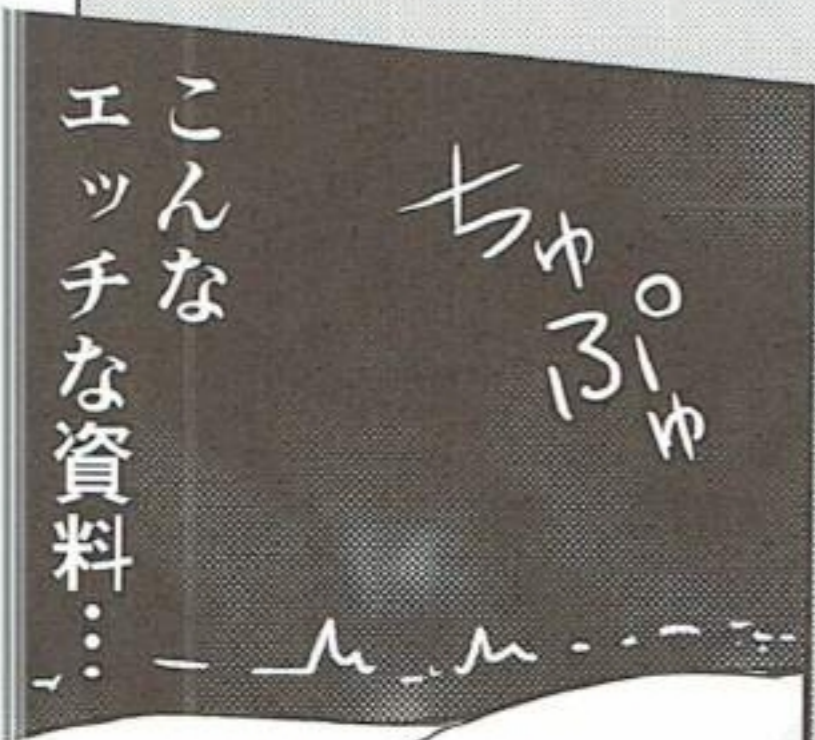 ちゅぷゅ
こんな
エッチな資料…